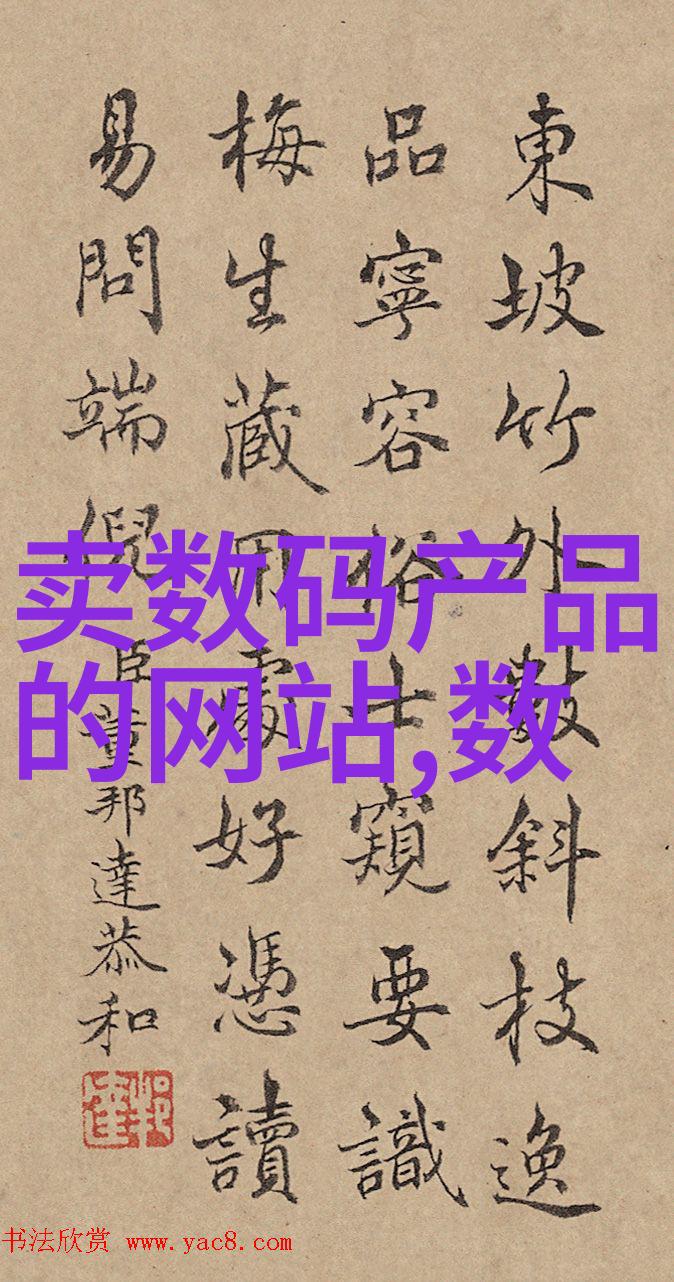 東坡竹外數斜枝逸
品寧容俗士窺要識
梅生藏用處好憑讀
易問端倪 臣董邦達恭和
卖数码产品
的网站,数
书法欣赏 www.yac8.com